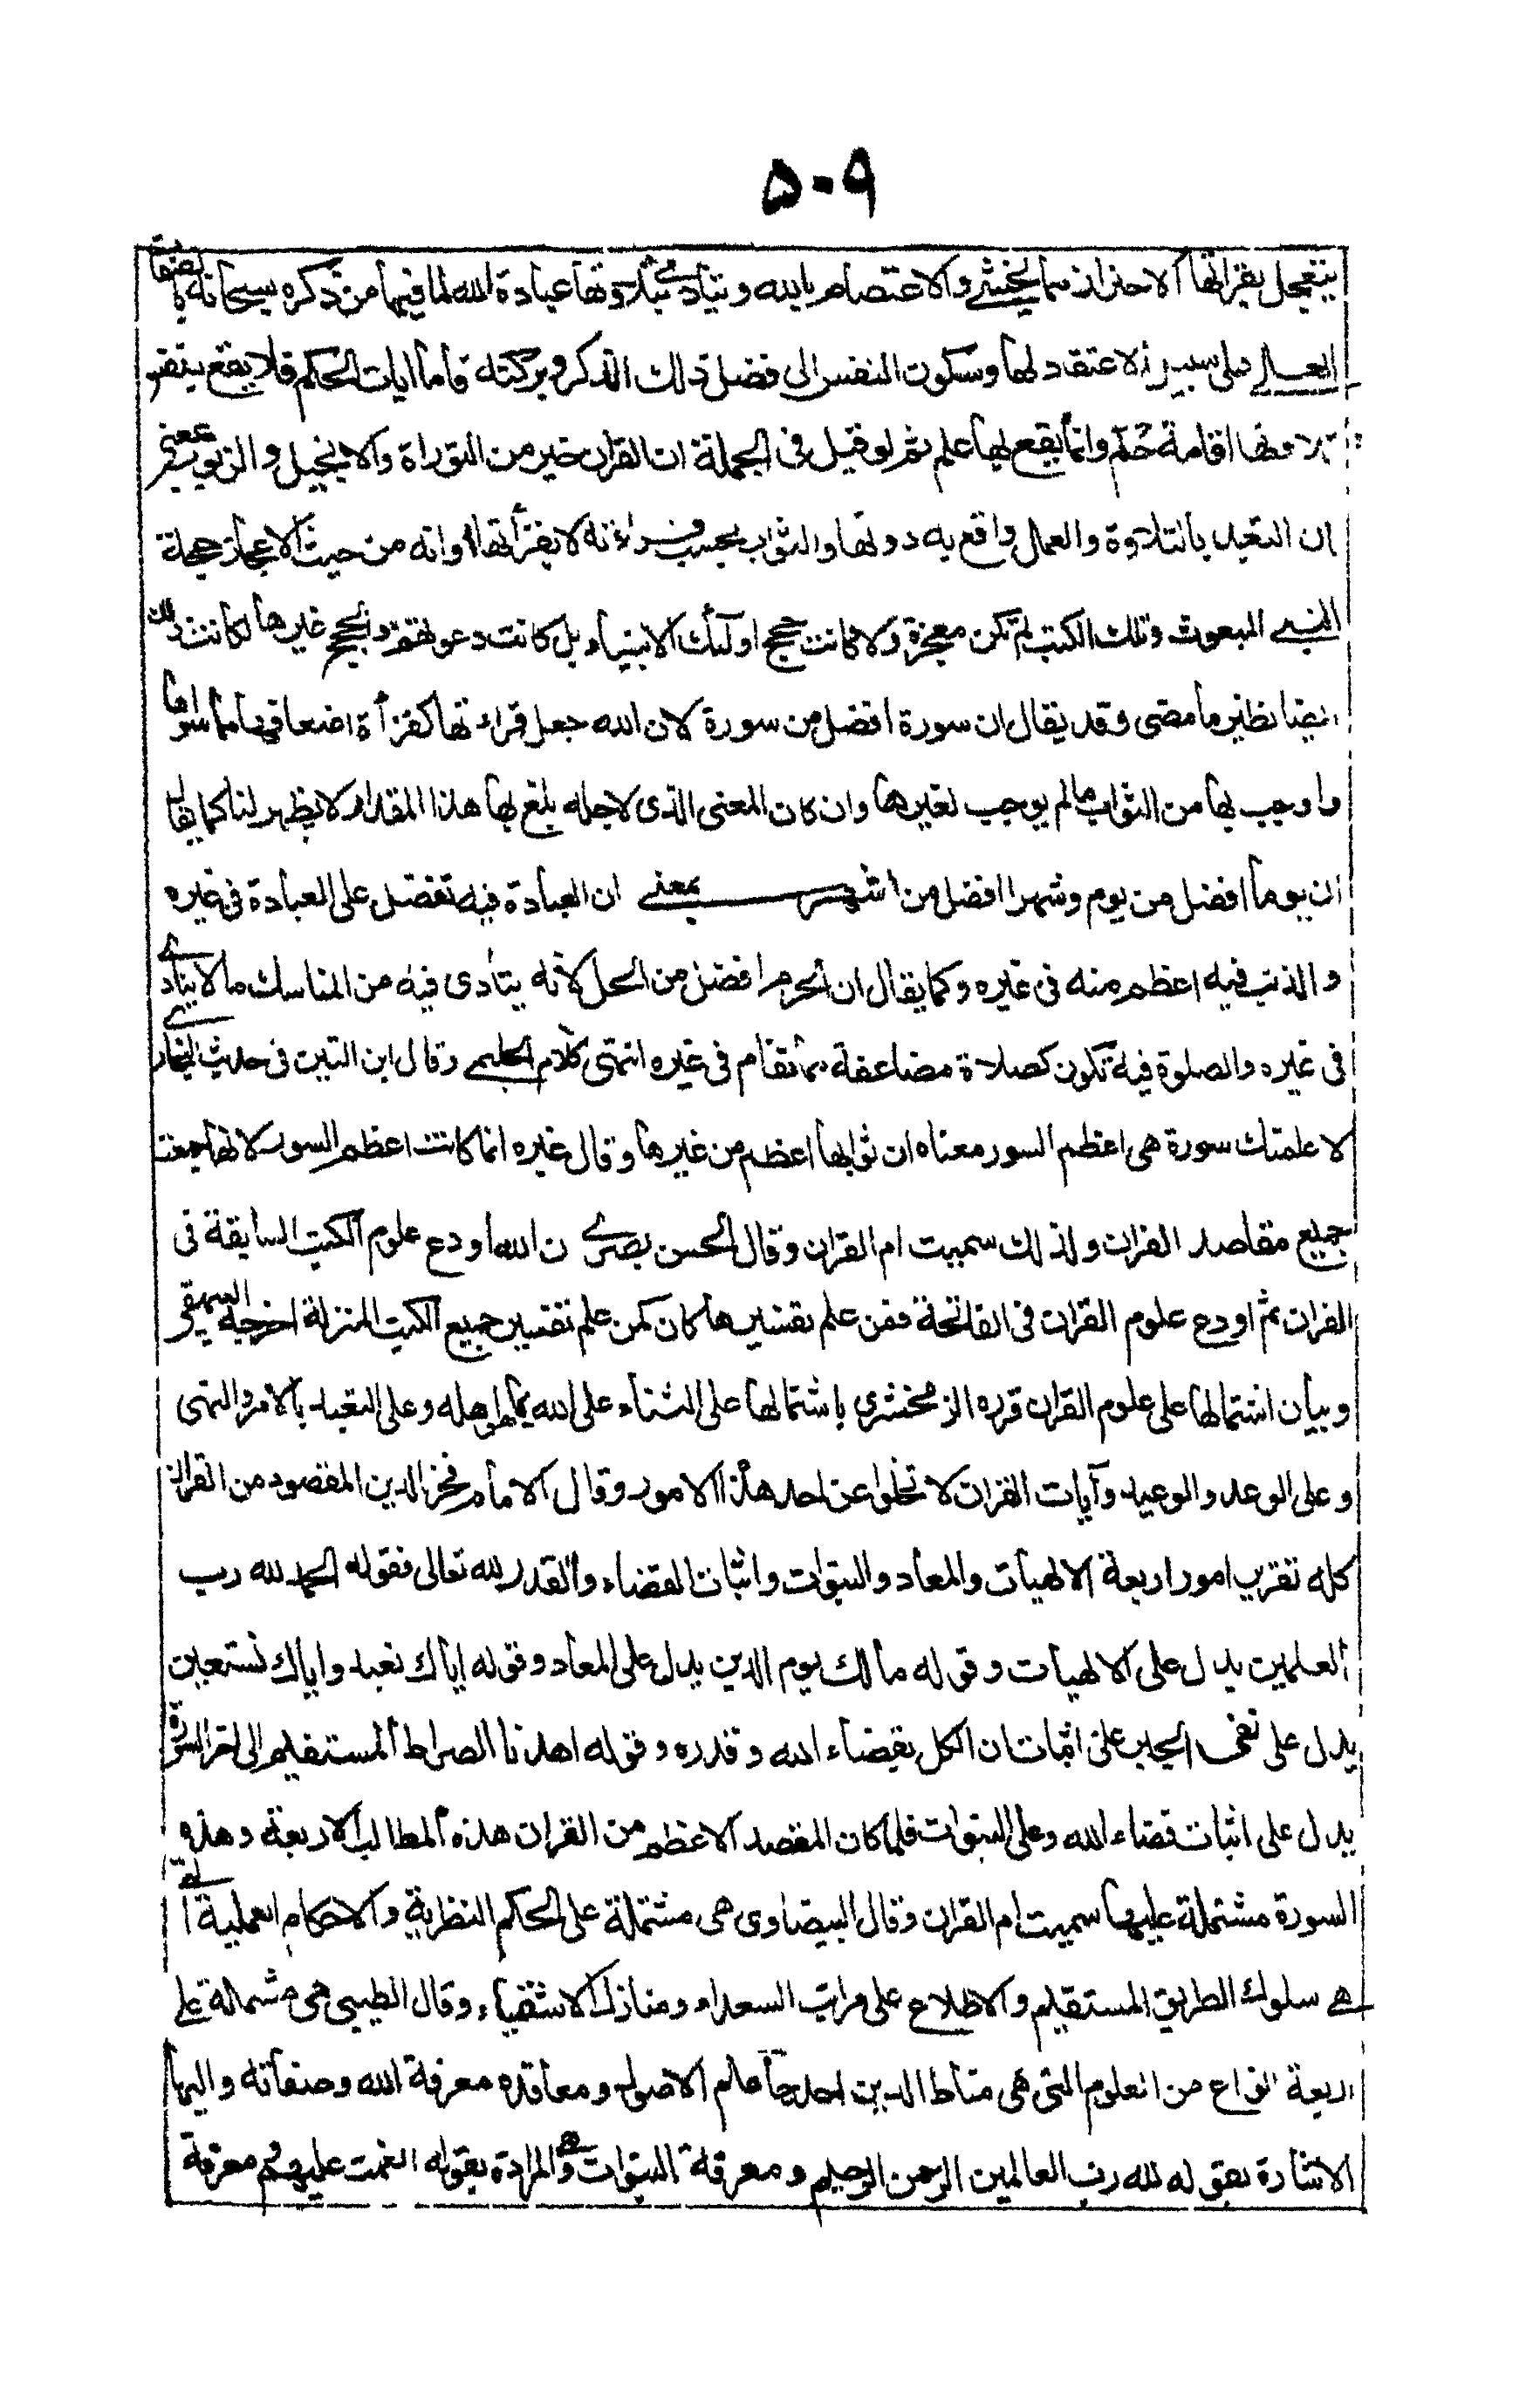 ۵۰۹
يتعجل بقرائتها الاحتراز مما يخشى والاعتصام بالله ويتادى بتلاوتها عبادة الله لما فيها من ذكره سبحانه بالصفات
العلى على سبيل الاعتقاد لها وسكون النفس الى فضل ذلك الذكر وبركته فاما ايات الحكم فلا يقع بنفس
تلاوتها اقامة حكم وانما يقع لها علم ثم لو قيل فى الجملة ان القران خير من التوراة والانجيل والزبور بمعنى
ان التعبد بالتلاوة والعمل واقع به دونها والثواب بحسب قراءته لا بقرأتها او انه من حيث الاعجاز حجة
النبى المبعوث وتلك الكتب لم تكن معجزة ولا كانت حجج اولئك الانبياء بل كانت دعوتهم والحجج غيرها لكان ذلك
ايضا نظير ما مضى وقد يقال ان سورة افضل من سورة لان الله جعل قراءتها كقرأة اضعافها مما سواها
واوجب بها من الثواب ما لم يوجب لغيرها وان كان المعنى الذى لاجله بلغ بها هذا المقدار لا يظهر لنا كما يقال
ان يوما افضل من يوم وشهرا افضل من شهر بمعنى ان العبادة فيه تفضل على العبادة فى غيره
والذنب فيه اعظم منه فى غيره وكما يقال ان الحرم افضل من الحل لانه يتادى فيه من المناسك ما لا يتادى
فى غيره والصلوة فيه تكون كصلاة مضاعفة مما تقام فى غيره انتهى كلام الحليمى وقال ابن التين فى حديث البخارى
لاعلمنك سورة هى اعظم السور معناه ان ثوابها اعظم من غيرها وقال غيره انما كانت اعظم السور لانها جمعت
جميع مقاصد القران ولذلك سميت ام القران وقال الحسن بصرى ن الله اودع علوم الكتب السابقة فى
القران ثم اودع علوم القران فى الفاتحة فمن علم تفسيرها كان كمن علم تفسير جميع الكتب المنزلة اخرجه البيهقى
وبيان اشتمالها على علوم القران قرره الزمخشرى باشتمالها على الثناء على الله بما هو اهله وعلى التعبد بالامر والنهى
وعلى الوعد والوعيد وآيات القران لا تخلوا عن احد هذا الامور وقال الامام فخر الدين المقصود من القران
كله تقرير امور اربعة الالهيات والمعاد والنبوات واثبات القضاء والقدر لله تعالى فقوله الحمد لله رب
العلمين يدل على الالهيات وقوله مالك يوم الدين يدل على المعاد وقوله اياك نعبد واياك نستعين
يدل على نفى الجبر على اثبات ان الكل بقضاء الله وقدره وقوله اهدنا الصراط المستقيم الى اخر السورة
يدل على اثبات قضاء الله وعلى النبوات فلما كان المقصد الاعظم من القران هذه المطالب الاربعة وهذه
السورة مشتملة عليها سميت ام القران وقال البيضاوى هى مشتملة على الحكم النظرية والاحكام العملية التى
هى سلوك الطريق المستقيم والاطلاع على مراتب السعداء ومنازل الاشقياء وقال الطيبى هى مشتملة على
اربعة انواع من العلوم التى هى مناط الدين احدها علم الاصول ومعاقده معرفة الله وصفاته واليها
الاشارة بقوله لله رب العالمين الرحمن الرحيم ومعرفة النبوات وهى المرادة بقوله انعمت عليهم ومعرفة